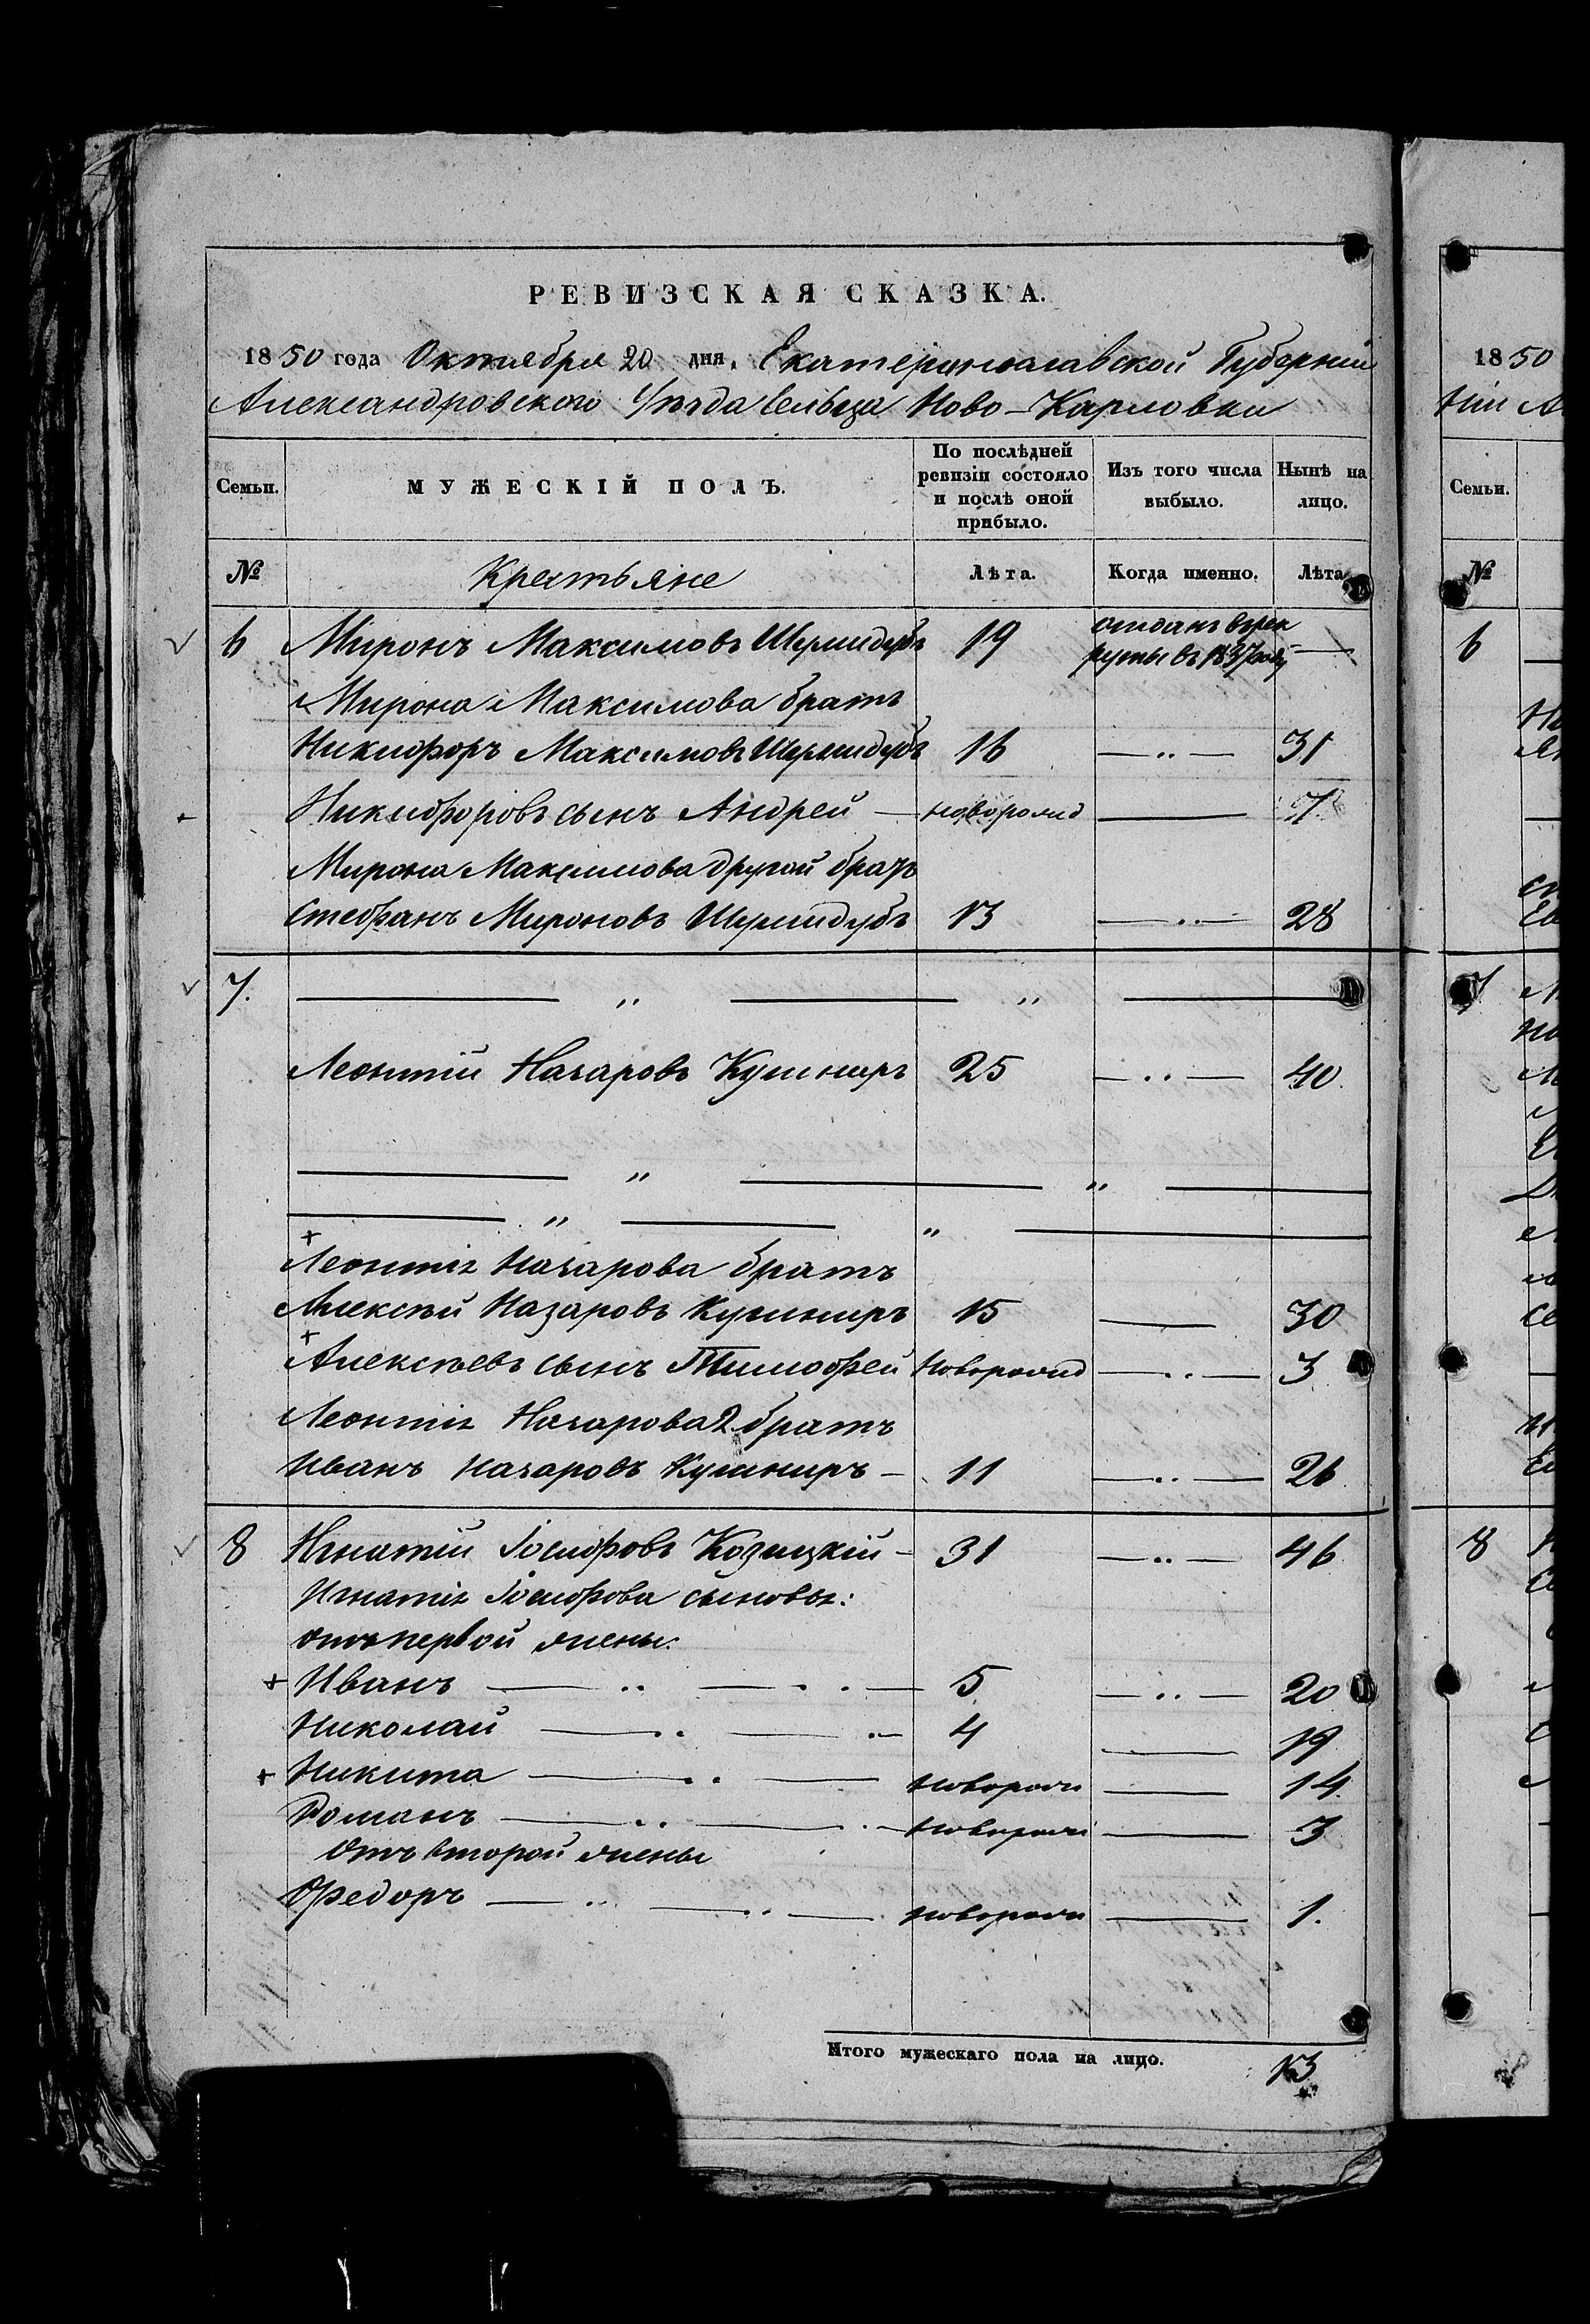 РЕВИЗСКАЯ СКАЗКА.
1850 года Октября 20 дня, Екатеринославской Губерніи
Александровского Уѣзда Сельца Ново-Карловки
Семьи. МУЖЕСКІЙ ПОЛЪ. По послѣдней ревизіи состояло и послѣ оной прибыло. Изъ того числа выбыло. Нынѣ на лицо.
№ Крестьяне Лѣта. Когда именно. Лѣта
6 Миронъ Максимовъ Шумидубъ 19 отданъ в рекруты въ 1837 году —
Мирона Максимова братъ
Никифоръ Максимовъ Шумидубъ 16 — „ — 31
Никифоровъ сынъ Андрей — новорожд — 7
Мирона Максимова другой братъ
Стефанъ Мироновъ Шумидубъ 13 — „ — 28
7. — „ — „ —
Леонтій Назаровъ Кушниръ 25 — „ — 40
— „ — „ —
— „ — „ —
Леонтія Назарова братъ
Алексѣй Назаровъ Кушниръ 15 — 30
Алексѣевъ сынъ Тимофей новорожд — „ — 3
Леонтія Назарова 2 братъ
Иванъ Назаровъ Кушниръ — 11 — „ — 26
8 Игнатій Іосифовъ Козицкій — 31 — „ — 46
Игнатія Іосифова сыновья:
отъ первой жены:
+ Иванъ — „ — „ — 5 — „ — 20
Николай — „ — „ — 4 — 19
+ Никита — „ — новорож — 14.
Романъ — „ — „ — новорож — 3
Отъ второй жены
Федоръ — „ — „ — новорож — 1.
Итого мужескаго пола на лицо. 13
1850
№
6
7
8
Семьи.